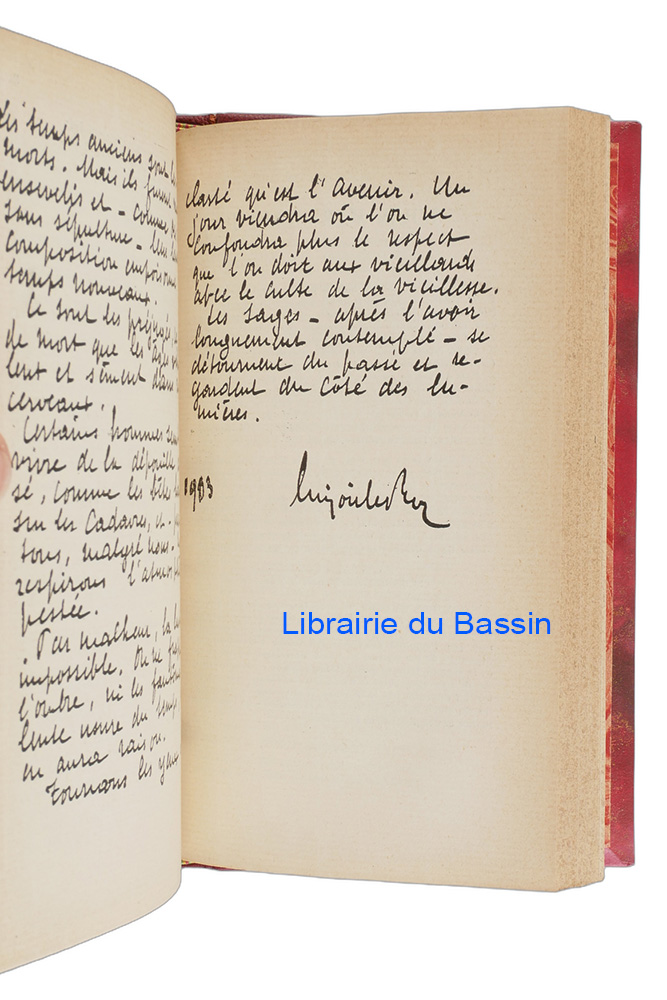 Les temps anciens sont
morts. Mais ils furent
ensevelis et - comme
sans sépulture -
composition
temps nouveaux.
Ce sont les préjugés
de mort que les
lent et sèment dans
cerveaux.
Certains hommes
vivre de la dépouille
sé, comme les bêtes
sur les cadavres, et
tous, malgré nous -
respirons l'atmos
pestée.
Par malheur, la
impossible. On ne
l'ombre, ni les fantô
lente usure du temps
en aura raison.
Tournons les yeux
clarté qu'est l'avenir. Un
jour viendra où l'on ne
confondra plus le respect
que l'on doit aux vieillards
avec le culte de la vieillesse.
Les sages - après l'avoir
longuement contemplé - se
détournent du passé et re-
gardent du côté des lu-
mières.
1903
Librairie du Bassin